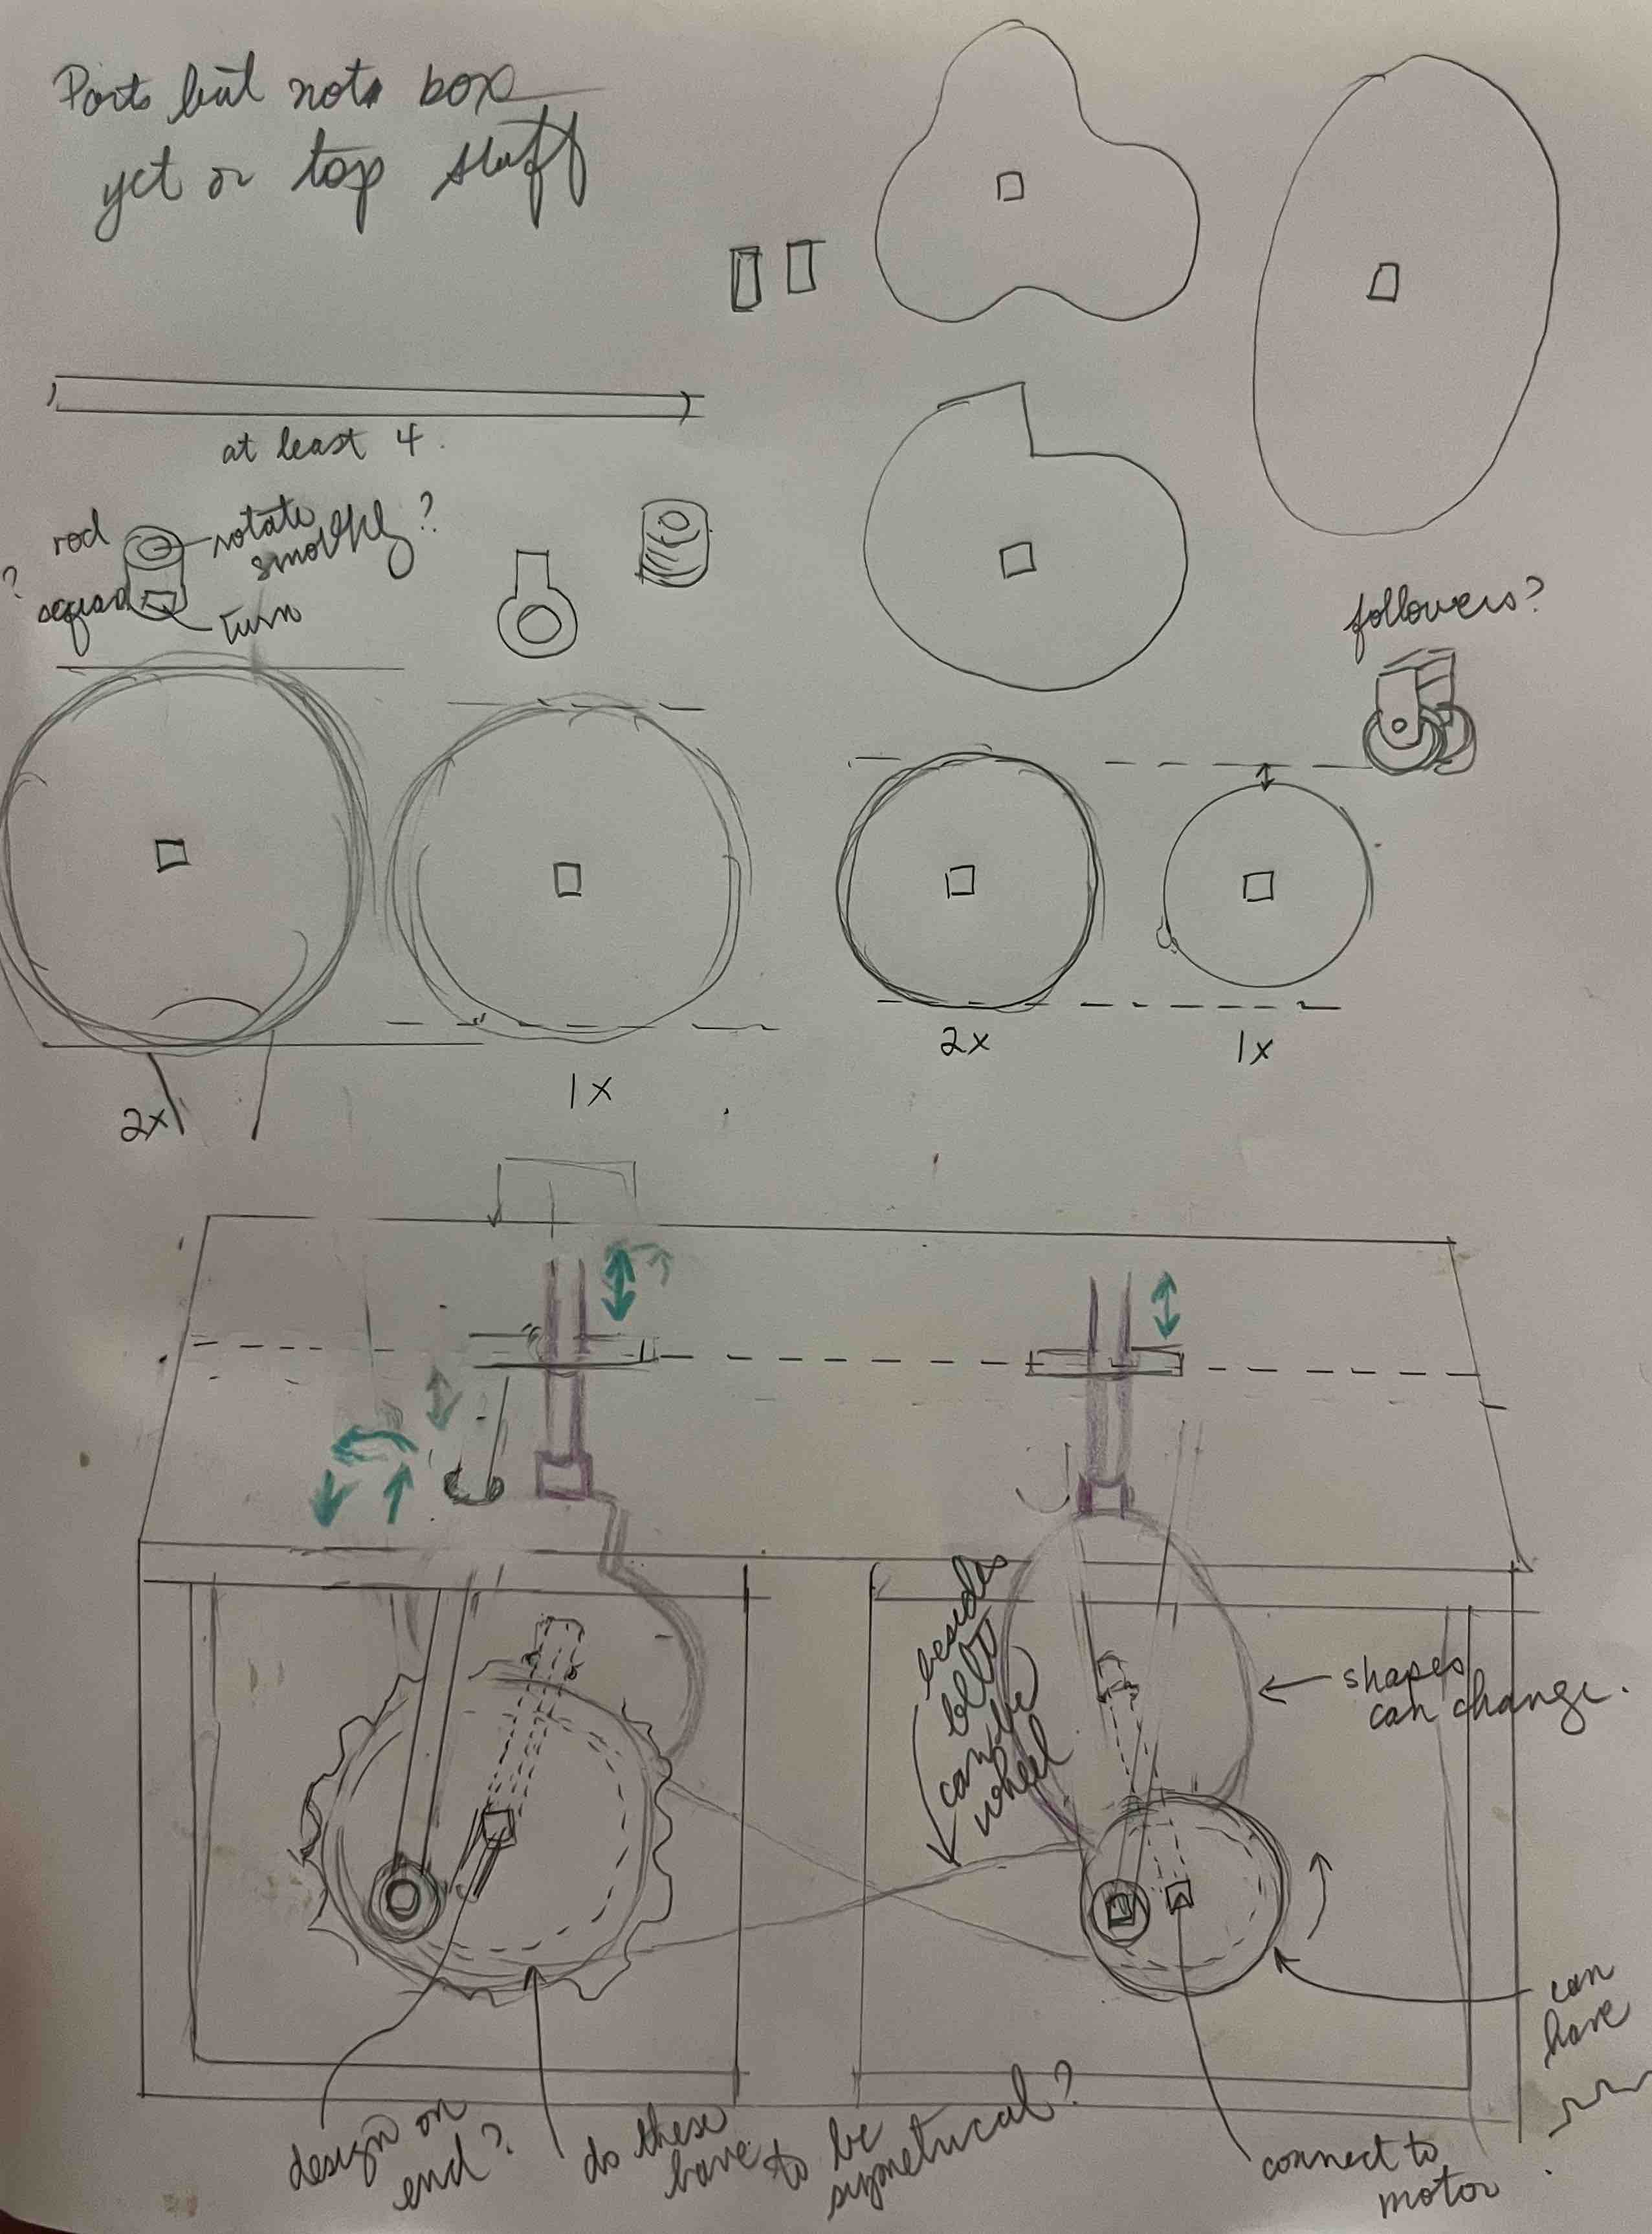 Parts but not box
yet or top stuff
at least 4.
rod
rotate
smoothly?
?
square
turn
followers?
2x
1x
2x
1x
besides
belt
can be
wheel
shapes
can change.
can
have
design on
end?
do these
have to be
symetrical?
connect to
motor